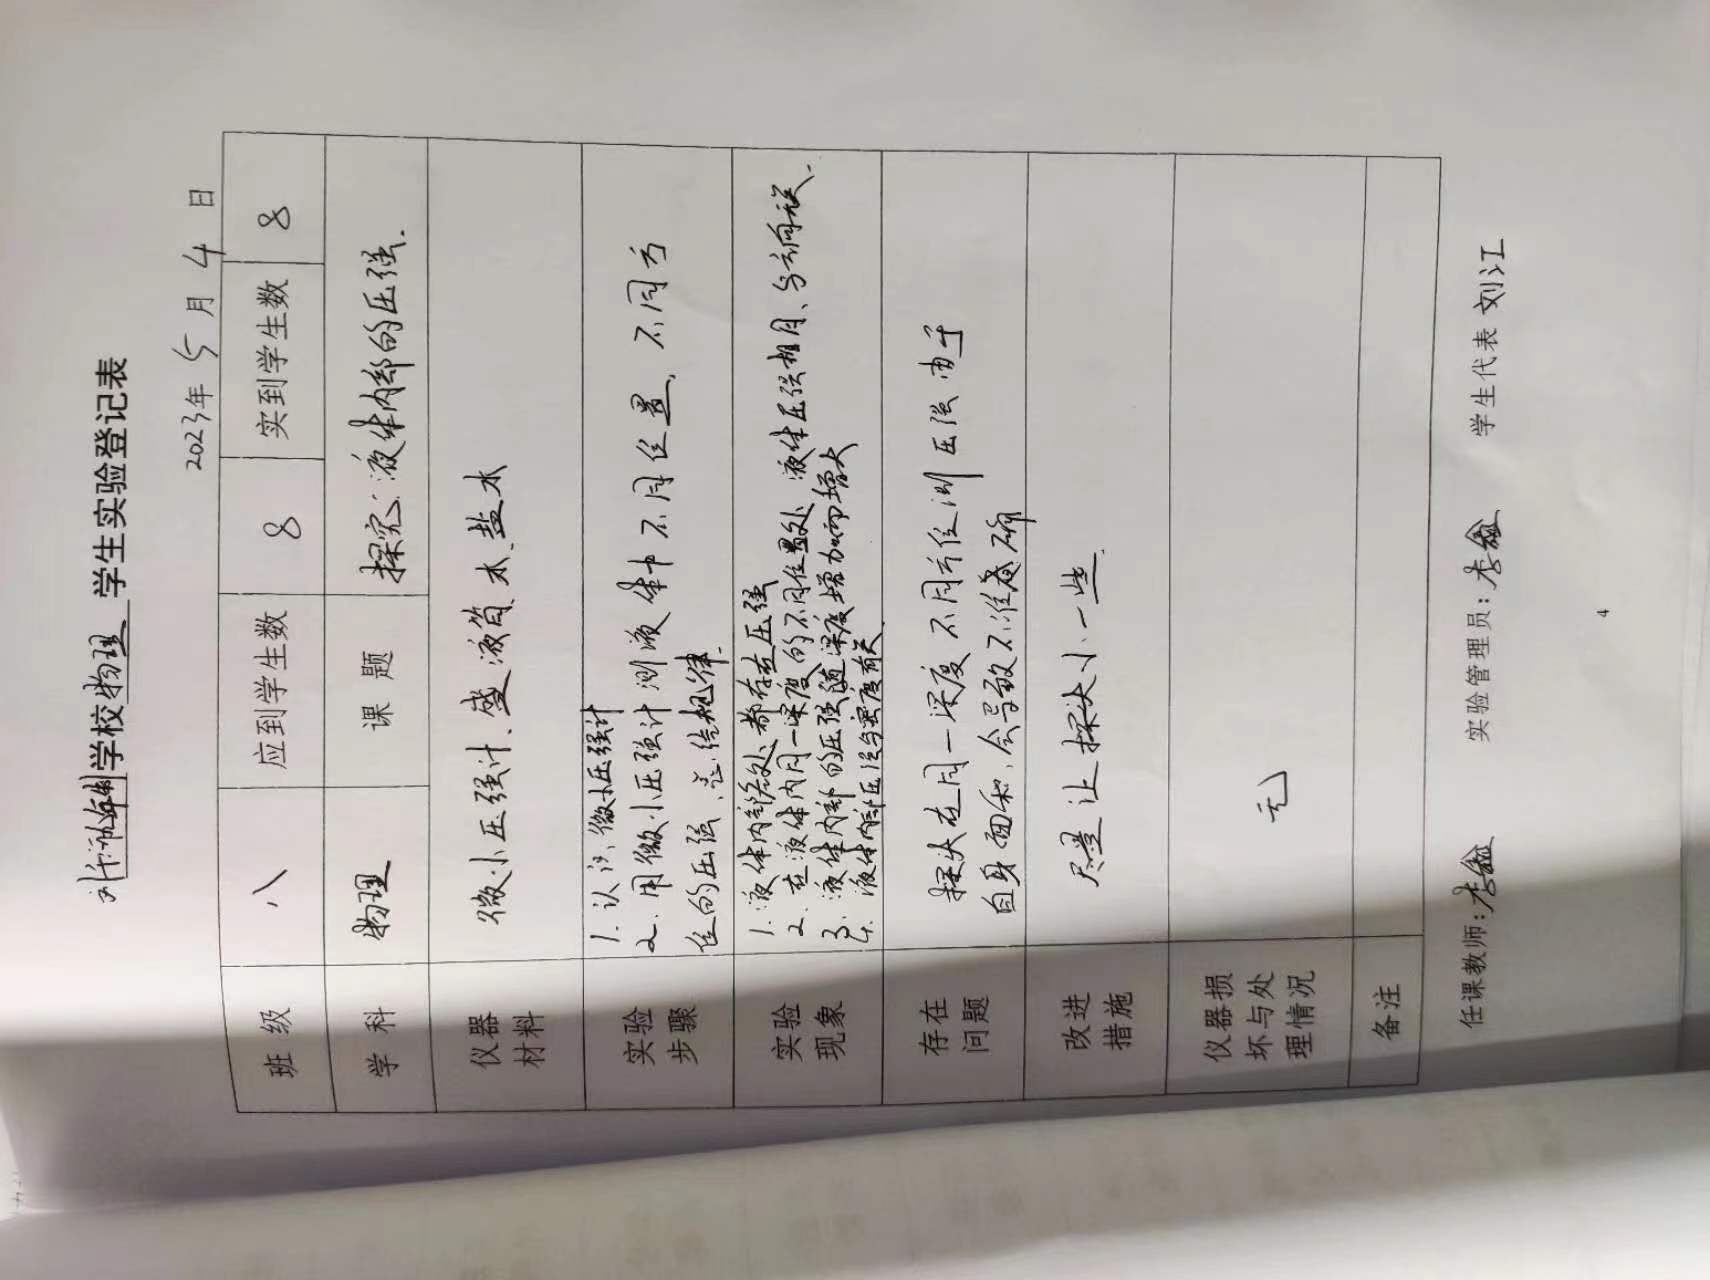 学校物理 学生实验登记表
2023年 5 月 4 日
班 级 八 应到学生数 8 实到学生数 8
学 科 物理 课 题 探究:液体内部的压强.
仪器材料 微小压强计、盛液筒、水、盐水
实验步骤 1. 认识微小压强计
2. 用微小压强计测液体中不同位置,不同方
位的压强、总结规律.
实验现象 1. 液体内部各处都存在压强
2. 在液体内同一深度的不同位置处 液体压强相同、与方向无关.
3. 液体内部的压强随深度增加而增大
4. 液体内部压强与密度有关
存在问题 探头在同一深度不同方位测压强由于
自身面积,会导致不准确
改进措施 尽量让探头小一些.
仪器损坏与处理情况 无
备注
任课教师:李鑫 实验管理员:李鑫 学生代表 刘江
4